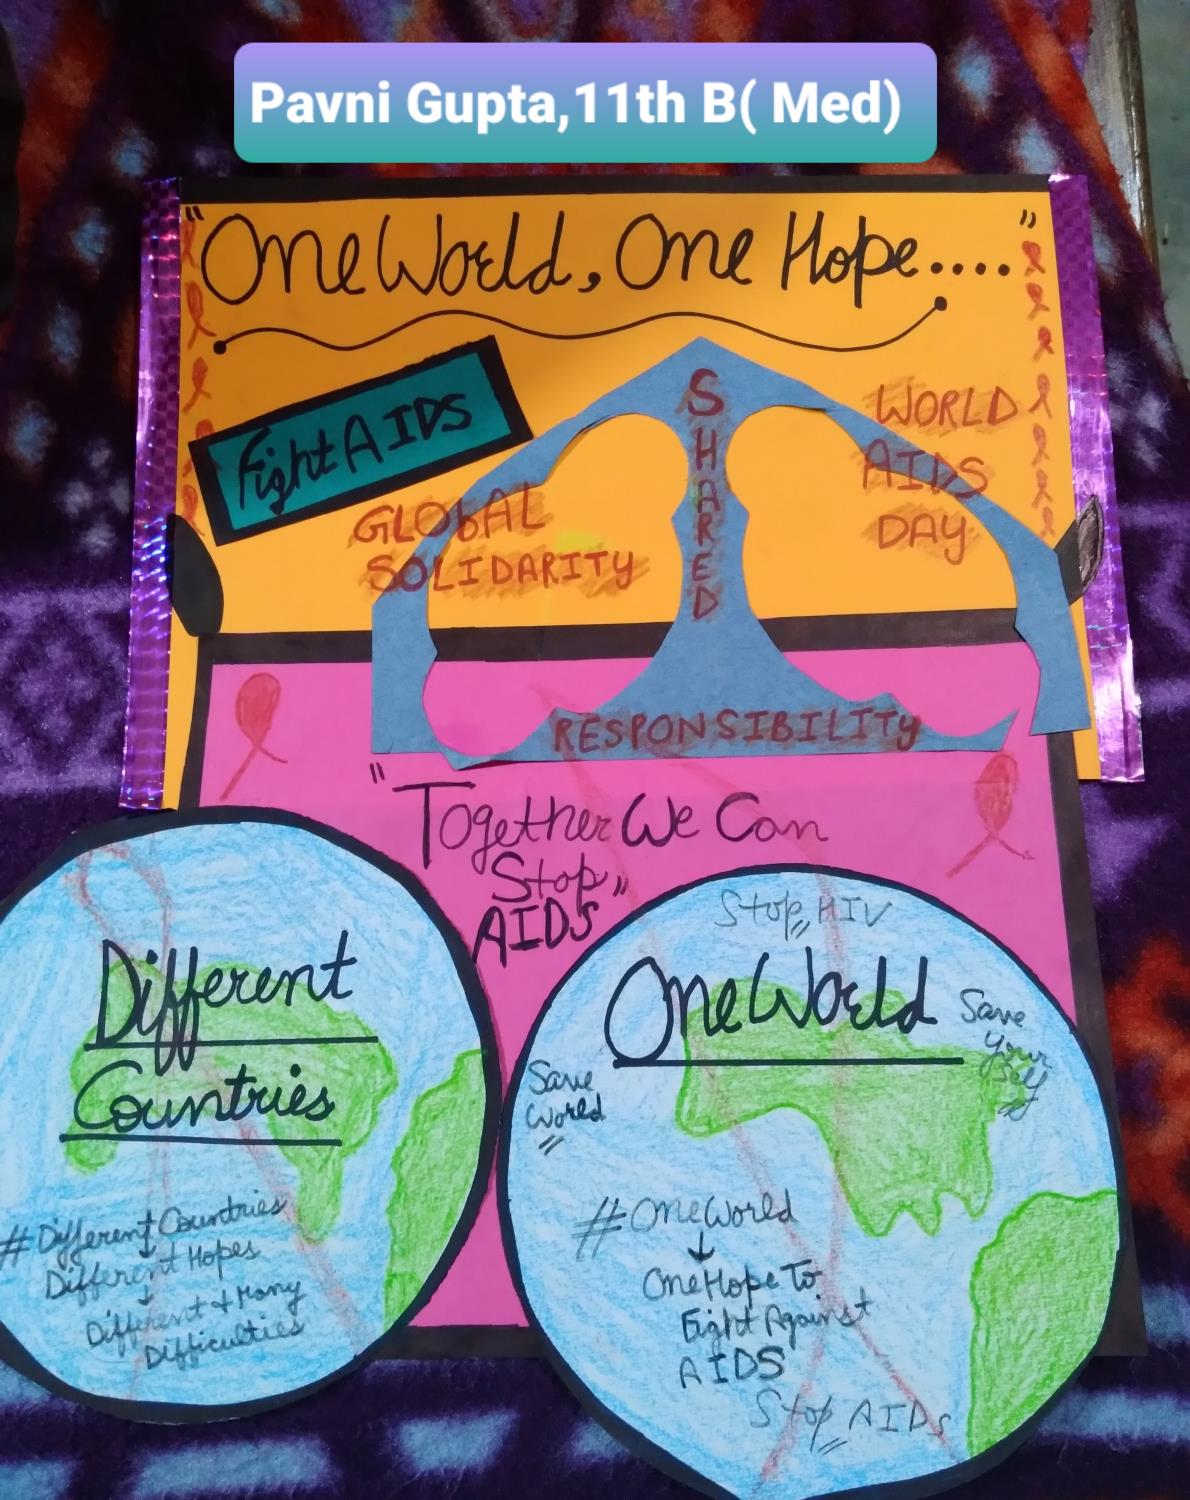 Pavni Gupta,11th B( Med)
"One World, One Hope...."
Fight AIDS
GLObAL
SOLIDARITY
SHARED
RESPONSIBILITY
WORLD
AIDS
DAY
"Together We Can
Stop"
AIDS
Different
Countries
# Different Countries
Different Hopes
Different & Many
Difficulties
Stop HIV
One World
Save
World
Save
Your
Self
# One World
One Hope To
Fight Against
AIDS
Stop AIDs